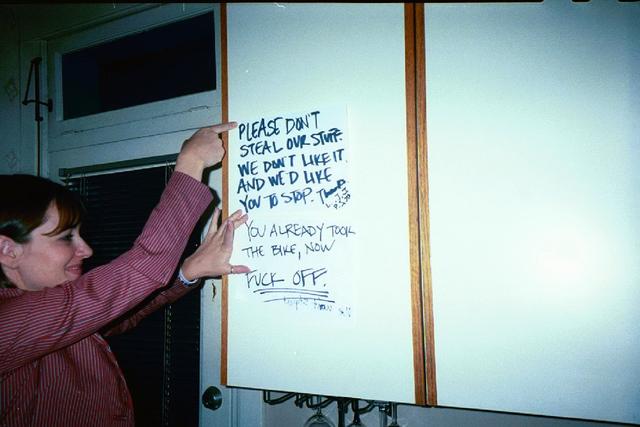 PLEASE DON'T
STEAL OUR STUFF.
WE DON'T LIKE IT
AND WE'D LIKE
YOU TO STOP.
YOU ALREADY TOOK
THE BIKE, NOW
FUCK OFF.